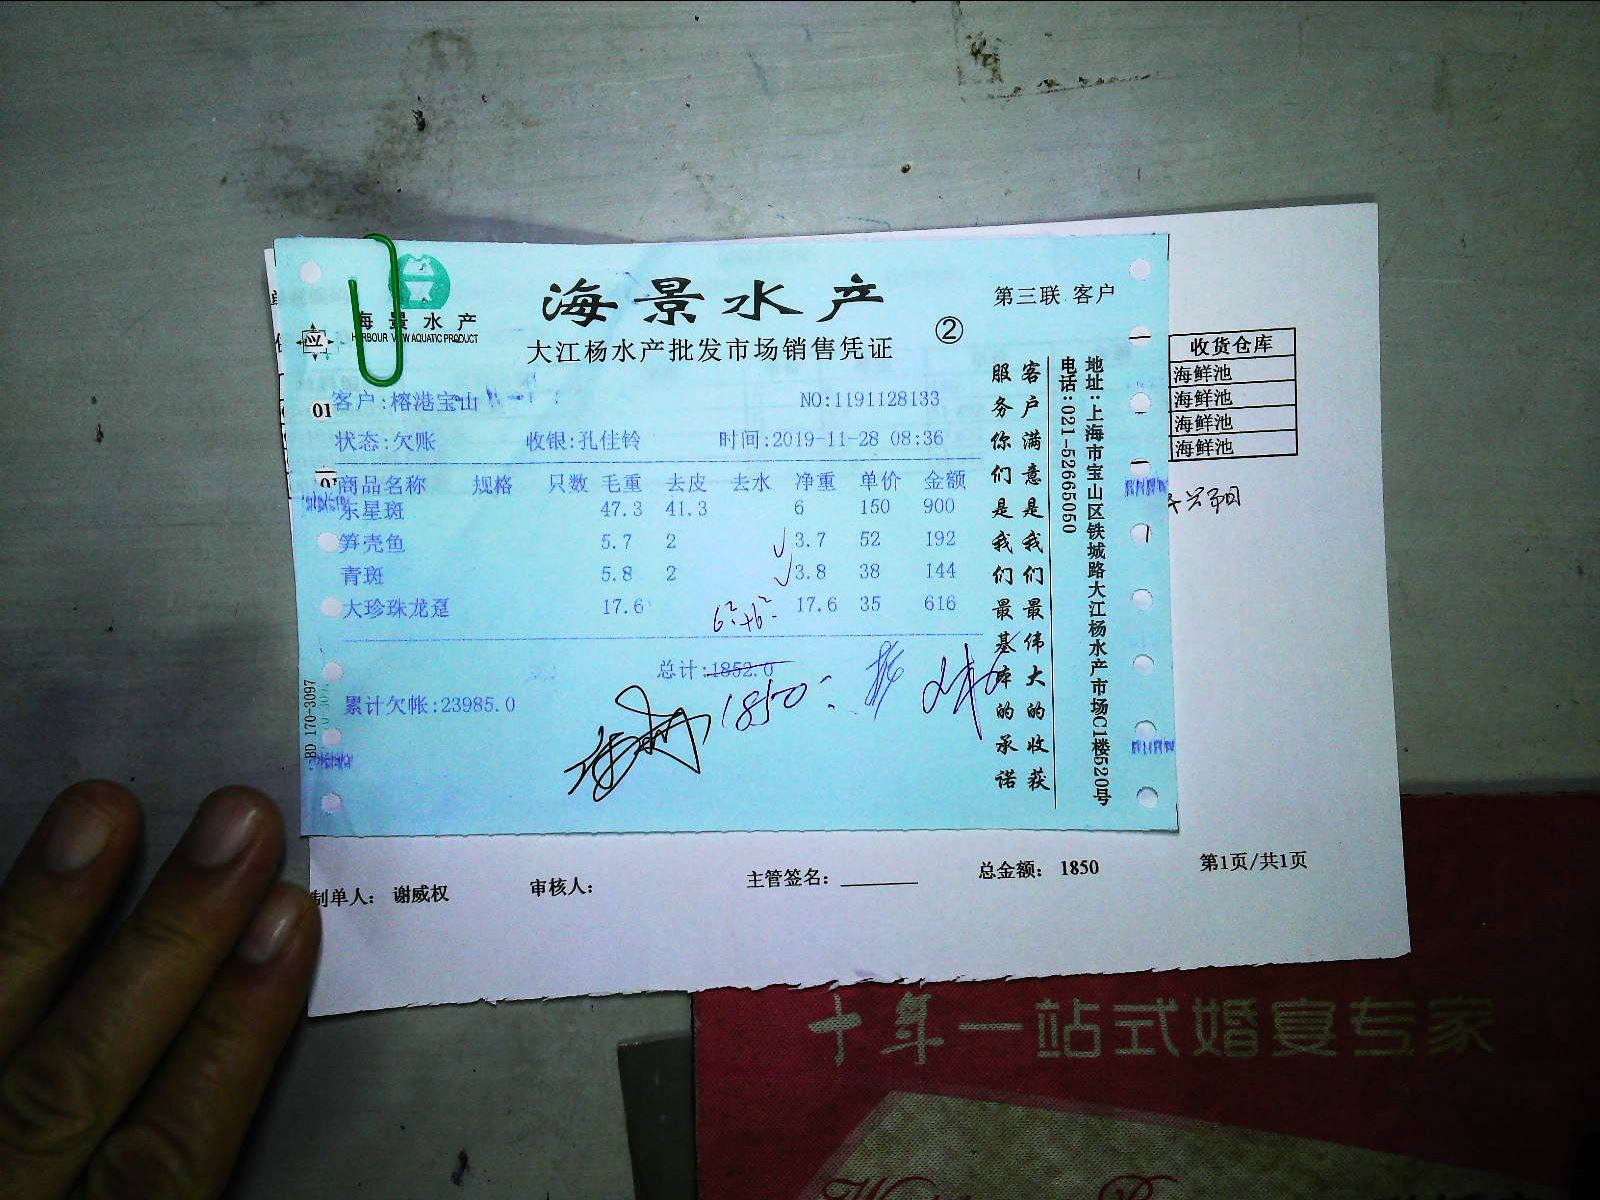 海景水产
HARBOUR VIEW AQUATIC PRODUCT
海景水产
第三联 客户
大江杨水产批发市场销售凭证
②
客户:榕港宝山
NO:1191128133
状态:欠账 收银:孔佳铃 时间:2019-11-28 08:36
商品名称 规格 只数 毛重 去皮 去水 净重 单价 金额
东星斑 47.3 41.3 6 150 900
笋壳鱼 5.7 2 3.7 52 192
青斑 5.8 2 3.8 38 144
大珍珠龙趸 17.6 17.6 35 616
总计:1852.0
1850
累计欠帐:23985.0
客户满意是我们最伟大的收获
服务你们是我们最基本的承诺
地址:上海市宝山区铁城路大江杨水产市场C1楼520号
电话:021-52665050
BD 170-3097
应
01
收货仓库
海鲜池
海鲜池
海鲜池
海鲜池
制单人: 谢威权 审核人: 主管签名: 总金额: 1850 第1页/共1页
十年一站式婚宴专家